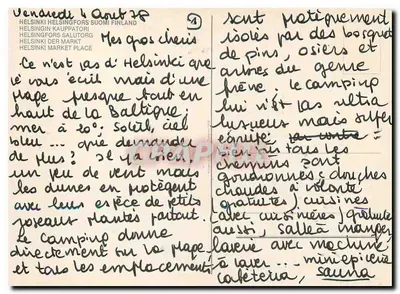 Vendredi 4 Aout 78
HELSINKI HELSINGFORS SUOMI FINLAND
HELSINGIN KAUPPATORI
HELSINGFORS SALUTORG
HELSINKI DER MARKT
HELSINKI MARKET PLACE
Mes gros cheris
Ce n'est pas d'Helsinki que
je vous écris mais d'une
plage presque tout en
haut de la Baltique,
mer à 20°; Soleil, ciel
bleu ... que demander
de plus? Il y a bien
un peu de vent mais
les dunes en protègent
avec leur espèce de petits
roseaux plantés partout.
Le camping donne
directement sur la plage
et tous les emplacements
sont pratiquement
isolés par des bosquets
de pins, osiers et
arbres du genre
frêne; le camping
lui n'est pas ultra
luxueux mais super
équipé par contre =
tous les
chemins sont
goudronnés; douches
chaudes à volonté
(gratuites), cuisines
(avec cuisinières) gratuites
aussi, salle à manger
laverie avec machine
à laver ... mini épicerie
cafétéria, sauna